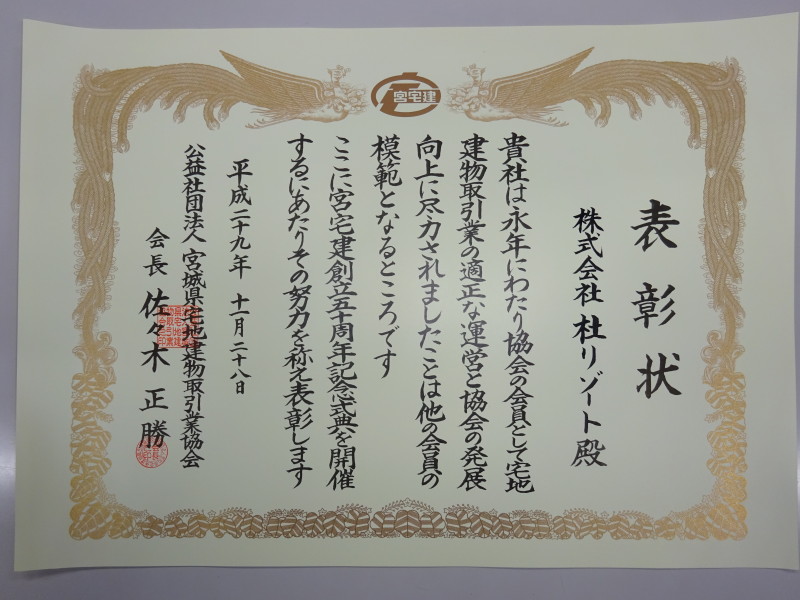 宮宅建
表彰状
株式会社 杜リゾート殿
貴社は永年にわたり協会の会員として宅地
建物取引業の適正な運営と協会の発展
向上に尽力されましたことは他の会員の
模範となるところです
ここに宮宅建創立五十周年記念式典を開催
するにあたりその努力を称え表彰します
平成二十九年 十一月二十八日
公益社団法人 宮城県宅地建物取引業協会
会長 佐々木 正勝